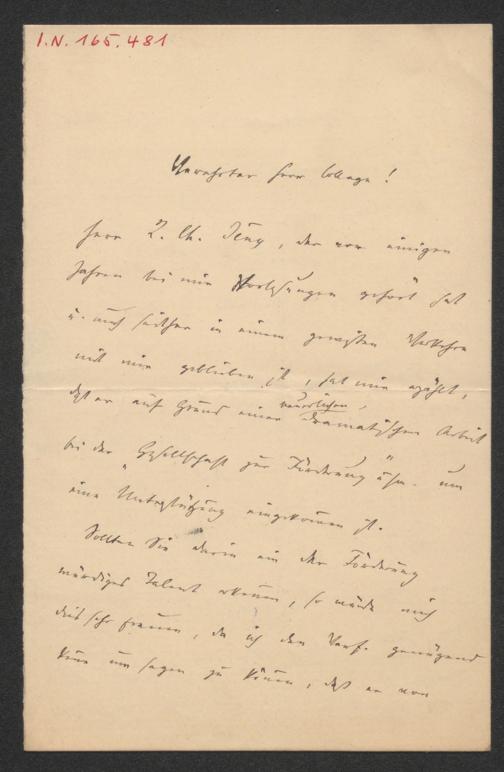 I.N. 165.481
Verehrter Herr College!
Herr L. Ch. , der vor einigen
Jahren bei mir Vorlesungen gehört hat
u. auch seither in einem gewissen Verkehre
mit mir geblieben ist, hat mir erzählt,
daß er auf Grund einer neuerlichen dramatischen Arbeit
bei der "Gesellschaft zur Förderung" usw. um
eine Unterstützung eingekommen ist.
Sollten Sie darin ein der Förderung
würdiges Talent erkennen, so würde mich
dieß sehr freuen, da ich den Verf. genügend
kenne um sagen zu können, daß er von